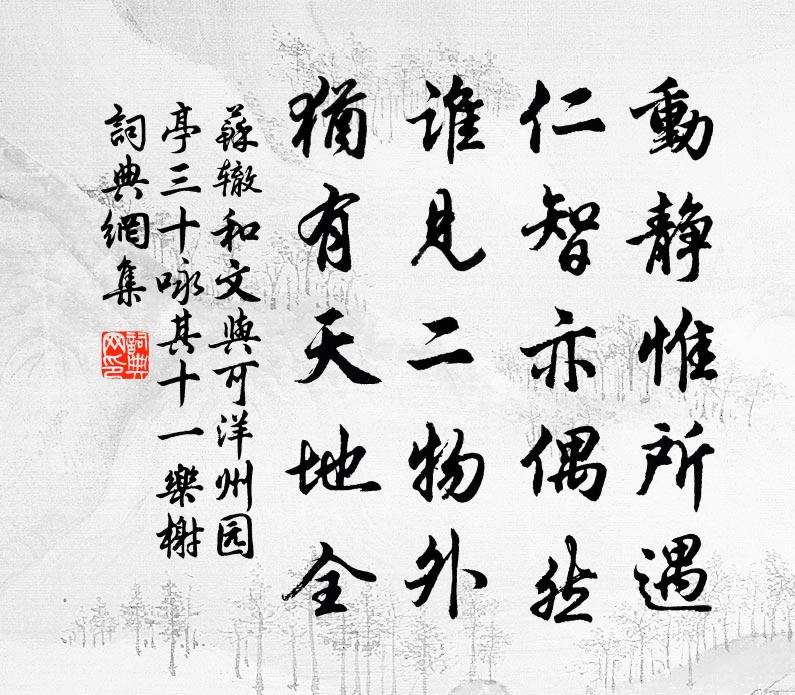 動靜惟所遇
仁智亦偶然
誰見二物外
猶有天地全
蘇辙和文與可洋州园
亭三十咏其十一樂榭
詞典網集
詞典网印